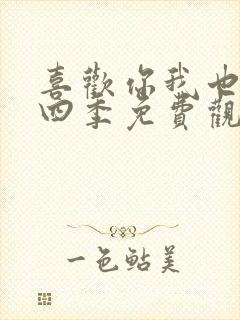 喜歡你我也
四季免費觀
一色鲇美